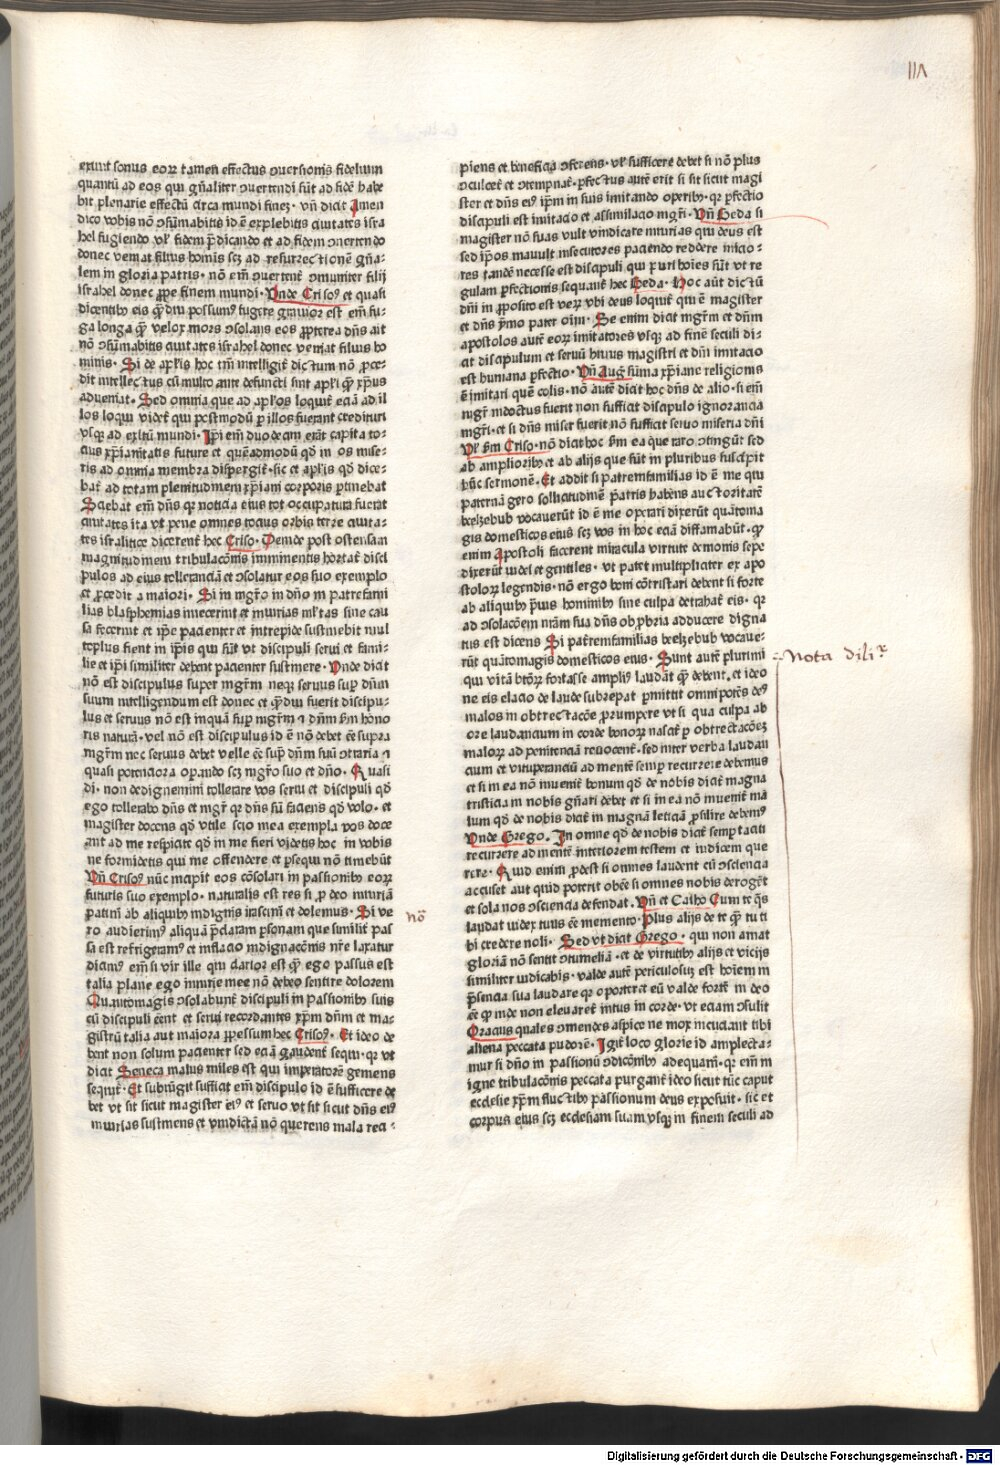 11Λ
exiuit sonus eoꝝ tamen effectus ꝯuersionis fidelium
quantū ad eos qui gn̄aliter ꝯuertendi sūt ad fidē habe
bit plenarie effectū circa mundi finez · vn̄ dicit Amen
dico vobis nō ꝯsūmabitis id ē explebitis ciuitates isra
hel fugiendo vl̓ fidem p̄dicando et ad fidem ꝯuertendo
donec veniat filius hominis scꝫ ad resurrectionē gn̄a⸗
lem in gloria patris · nō em̄ ꝯuertent̄ ꝯmuniter filij
israhel donec ꝓpe finem mundi · Vnde Crisoꝰ et quasi
dicentibꝰ eis ꝙ̄diu possumꝰ fugere grauior est em̄ fu⸗
ga longa ꝙ̄ velox mors ꝯsolans eos ꝓpterea dn̄s ait
nō ꝯsūmabitis ciuitates israhel donec veniat filius ho
minis · Si de apl̓is hoc tm̄ intelligit̄ dictum nō ꝓce⸗
dit intellectus cū multo ante defuncti sint apl̓i ꝙ̄ xp̄us
adueniat · Sed omnia que ad apl̓os loquit̄ eciā ad il
los loqui videt̄ qui postmodū ꝑ illos fuerant credituri
vsqꝫ ad exitū mundi · Ipi em̄ duodecim erāt capita to⸗
cius xp̄ianitatis future et quēadmodū qd̓ in os mise⸗
ris ad omnia membra dispergit̄ · sic et apl̓is qd̓ dice⸗
bat̄ ad totam plenitudinem xp̄iani corporis ptinebat
Sciebat em̄ dn̄s qꝛ noticia eius tot occupatura fuerat
ciuitates ita vt pene omnes tocius orbis terre ciuita⸗
tes isralitice dicerent̄ hec Criso · Deinde post ostensam
magnitudinem tribulacōnis imminentis hortat̄ disci
pulos ad eius tolleranciā et ꝯsolatur eos suo exemplo
et ꝓcedit a maiori · Si in mgr̄o in dn̄o in patrefami
lias blasphemias iniecerint et iniurias ml̓tas sine cau
sa fecerint et ip̄e pacienter et intrepide sustinebit mul
toplus fient in ip̄is qui sūt vt discipuli serui et fami⸗
lie et ip̄i similiter debent pacienter sustinere · Vnde dicit
nō est discipulus super mgr̄m neqꝫ seruus sup dn̄m
suum intelligendum est donec et ꝙ̄diu fuerit discipu⸗
lus et seruus nō est inquā sup mgr̄m ⁊ dn̄m ẜm hono
ris naturā · vel nō est discipulus id ē nō debet eē supra
mgr̄m nec seruus debet velle eē sup dn̄m suū ꝯtraria ⁊
quasi potenciora oꝑando scꝫ mgr̄o suo et dn̄o · Quasi
di · non dedignemini tollerare vos serui et discipuli qd̓
ego tollerabo dn̄s et mgr̄ qꝛ dn̄s sū faciens qd̓ volo · et
magister docens qd̓ vtile scio mea exempla vos doce
ant ad me respicite qd̓ in me fieri videtis hoc in vobis
ne formidetis qui me offendere et ꝑsequi nō timebūt
Vn̄ Crisoꝰ nūc incipit eos cōsolari in passionibꝰ eoꝝ
futuris suo exemplo · naturalis est res si ꝓ deo iniuriā
patim̄ ab aliquibꝰ indignis irascim̄ et dolemus · Si ve⸗
ro audierimꝰ aliquā p̄claram ꝑsonam que similit̄ pas
sa est refrigeramꝰ et inflacio indignacōnis nr̄e laxatur
dicimꝰ em̄ si vir ille qui clarior est ꝙ̄ ego passus est
talia plane ego iniurie mee nō debeo sentire dolorem
Quantomagis ꝯsolabunt̄ discipuli in passionibꝰ suis
cū discipuli eēnt et serui recordantes xp̄m dn̄m et ma⸗
gistrū talia aut maiora ꝑpessum hec Crisoꝰ · Et ideo de
bent non solum pacienter sed eciā gaudent̄ sequi · qꝛ vt
dicit Seneca malus miles est qui imperatorē gemens
seqūit̄ · Et subiūgit sufficit em̄ discipulo id ē sufficere de
bet vt sit sicut magister eiꝰ et seruo vt sit sicut dn̄s eiꝰ
iniurias sustinens et vindictā nō querens mala reci⸗
nō
piens et beneficia ꝯferens · vl̓ sufficere debet si nō plus
ꝯculcet̄ et ꝯtempnat̄ · pfectus autē erit si sit sicut magi
ster et dn̄s eiꝰ ip̄m in suis imitando operibꝰ · qꝛ pfectio
discipuli est imitacio et assimilacio mgr̄i · Vn̄ Beda si
magister nō suas vult vindicare iniurias qui deus est
sed ip̄os mauult insecutores paciendo reddere micio⸗
res tandē necesse est discipuli qui puri hoīes sūt vt re
gulam pfectionis sequant̄ hec Beda · Hoc aūt dictū
dn̄i in ꝓposito est veꝝ vbi deus loquit̄ qui ē magister
et dn̄s ꝑīmo pater oīm · Se enim dicit mgr̄m et dn̄m
apostolos autē eoꝝ imitatores vsqꝫ ad finē seculi di⸗
cit discipulum et seruū huius magistri et dn̄i imitacio
est humana pfectio · Vn̄ Aug̓ sūma xp̄iane religionis
ē imitari quē colis · nō autē dicit hoc dn̄s de alio · si em̄
mgr̄ indoctus fuerit non sufficit discipulo ignorancia
mgr̄i · et si dn̄s miser fuerit nō sufficit seruo miseria dn̄i
Vl̓ ẜm Criso · nō dicit hoc ẜm ea que raro ꝯtingūt sed
ab ampliorībꝰ et ab alijs que sūt in pluribus suscipit
hūc sermonē · Et addit si patremfamilias id ē me qui
paternā gero sollicitudinē p̄atris habens auctoritatē
beelzebub vocauerūt id ē me operari dixerūt quātoma
gis domesticos eius scꝫ vos in hoc eciā diffamabūt · Qn̄
enim Apostoli facerent miracula virtute demonis sepe
dixerūt iudei et gentiles · vt patet multipliciter ex apo
stoloꝝ legendis · nō ergo boni cōtristari debent si forte
ab aliquibꝰ p̄uis hominibꝰ sine culpa detrahat̄ eis · qꝛ
ad ꝯsolacōem nr̄am sua dn̄s obꝓbria adducere digna
tus est dicens Si patremfamilias beelzebub vocaue⸗
rūt quātomagis domesticos eius · Sunt autē plurimi
qui vitā bonoꝝ fortasse ampliꝰ laudāt ꝙ̄ debent · et ideo
ne eis elacio de laude subrepat pmittit omnipotēs deꝰ
malos in obtrectacōe ꝓrumpere vt si qua culpa ab
ore laudancium in corde bonoꝝ nascat̄ ꝑ obtrectacōeꝫ
maloꝝ ad penitenciā reuocent̄ · sed inter verba laudan
cium et vituperanciū ad mentē semp recurrere debemus
et si in ea nō inuenit̄ bonum qd̓ de nobis dicit̄ magna
tristicia in nobis gn̄ari debet et si in ea nō inuenit̄ ma
lum qd̓ de nobis dicit̄ in magnā leticiā ꝓsilire debemꝰ
Vnde Grego · In omne qd̓ de nobis dicit̄ semp taciti
recurrere ad mentē interiorem testem et iudicem que
rere · Quid enim ꝓdest si omnes laudent cū ꝯsciencia
accuset aut quid poterit obēe si omnes nobis derogēt
et sola nos ꝯsciencia defendat · Vn̄ et Catho Cum te q̓s
laudat iudex tuus eē memento · Plus alijs de te ꝙ̄ tu ti
bi credere noli · Sed vt dicit Grego · qui non amat
gloriā nō sentit ꝯtumeliā · et de virtutibꝰ alijs et vicijs
similiter iudicabis · valde autē periculosuꝫ est hoīem in
p̄sencia sua laudare qꝛ oporteret eū valde fortē in deo
eē ꝙ inde non eleuaret̄ intus in corde · vt eciam ꝯsulit
Oracius quales ꝯmendes aspice ne mox incuciant tibi
aliena peccata pudorē · Igit̄ loco glorie id amplecta⸗
mur si dn̄o in passionū ꝯdicōnibꝰ adequam̄ · qꝛ em̄ in
igne tribulacōnis peccata purgant̄ ideo sicut tūc caput
ecclesie xp̄m fluctibꝰ passionum deus exposuit · sic et
corpus eius scꝫ ecclesiam suam vsqꝫ in finem seculi ad
Nota dili
Digitalisierung gefördert durch die Deutsche Forschungsgemeinschaft - DFG